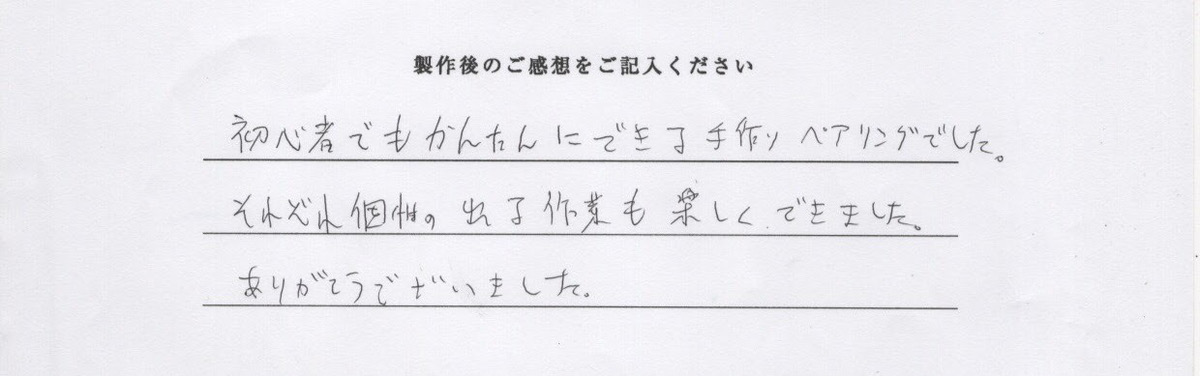 製作後のご感想をご記入ください
初心者でもかんたんにできる手作りペアリングでした。
それぞれ個性の出る作業も楽しくできました。
ありがとうございました。